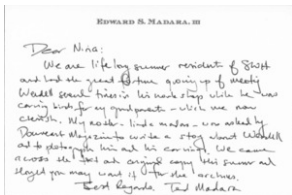 EDWARD S. MADARA, III
Dear Nina:
We are life long summer resident of SWH
and had the great fortune growing up of meeting
Wendell several times in his work shop while he was
carving birds for my grandparents - which we now
cherish. My mother - Linda Madara - was asked by
Downeast Magazine to write a story about Wendell
and to photograph him and his carvings. We came
across the and original copy this summer and
thought you may want it for the archives.
Best Regards, Ted Madara